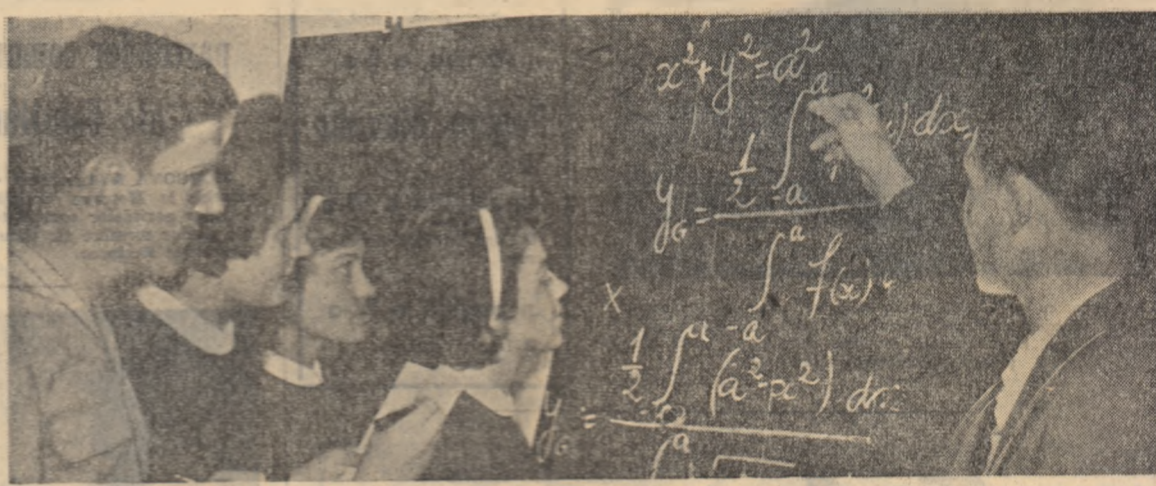 x²+y²=a²
y_G = ½ ∫_{-a}^{a} ²(x) dx
∫_{-a}^{a} f(x)
x
y_G = ½ ∫_{-a}^{a} (a²-x²) dx
∫^{a} √